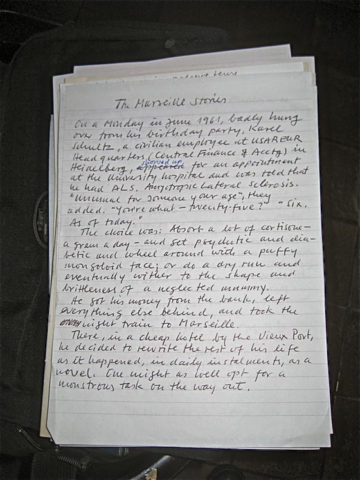 The Marseille Stories
On a Monday in June 1961, badly hung
over from his birthday party, Karel
Schultz, a civilian employee at USAREUR
Headquarters (Central Finance & Acctg) in
showed up
Heidelberg, appeared for an appointment
at the University hospital and was told that
he had ALS. Amyotrophic Lateral Sclerosis.
"Unusual for someone your age", they
added. "You're what – twenty-five?" – "Six.
As of today."
The choice was: Absorb a lot of cortisone –
a gram a day – and get psychotic and dia-
betic and wheel around with a puffy
mongoloid face; or do a dry run and
eventually wither to the shape and
brittleness of a neglected mummy.
He got his money from the bank, left
everything else behind, and took the
night train to Marseille.
There, in a cheap hotel by the Vieux Port,
he decided to rewrite the rest of his life
as it happened, in daily instalments, as a
novel. One might as well opt for a
monstrous task on the way out.